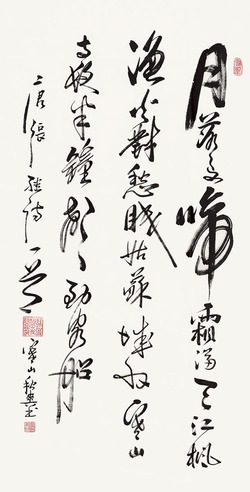 月落烏啼霜滿天江楓
漁火對愁眠姑蘇城外寒山
寺夜半鐘聲到客船
張繼詩一首
寒山秋